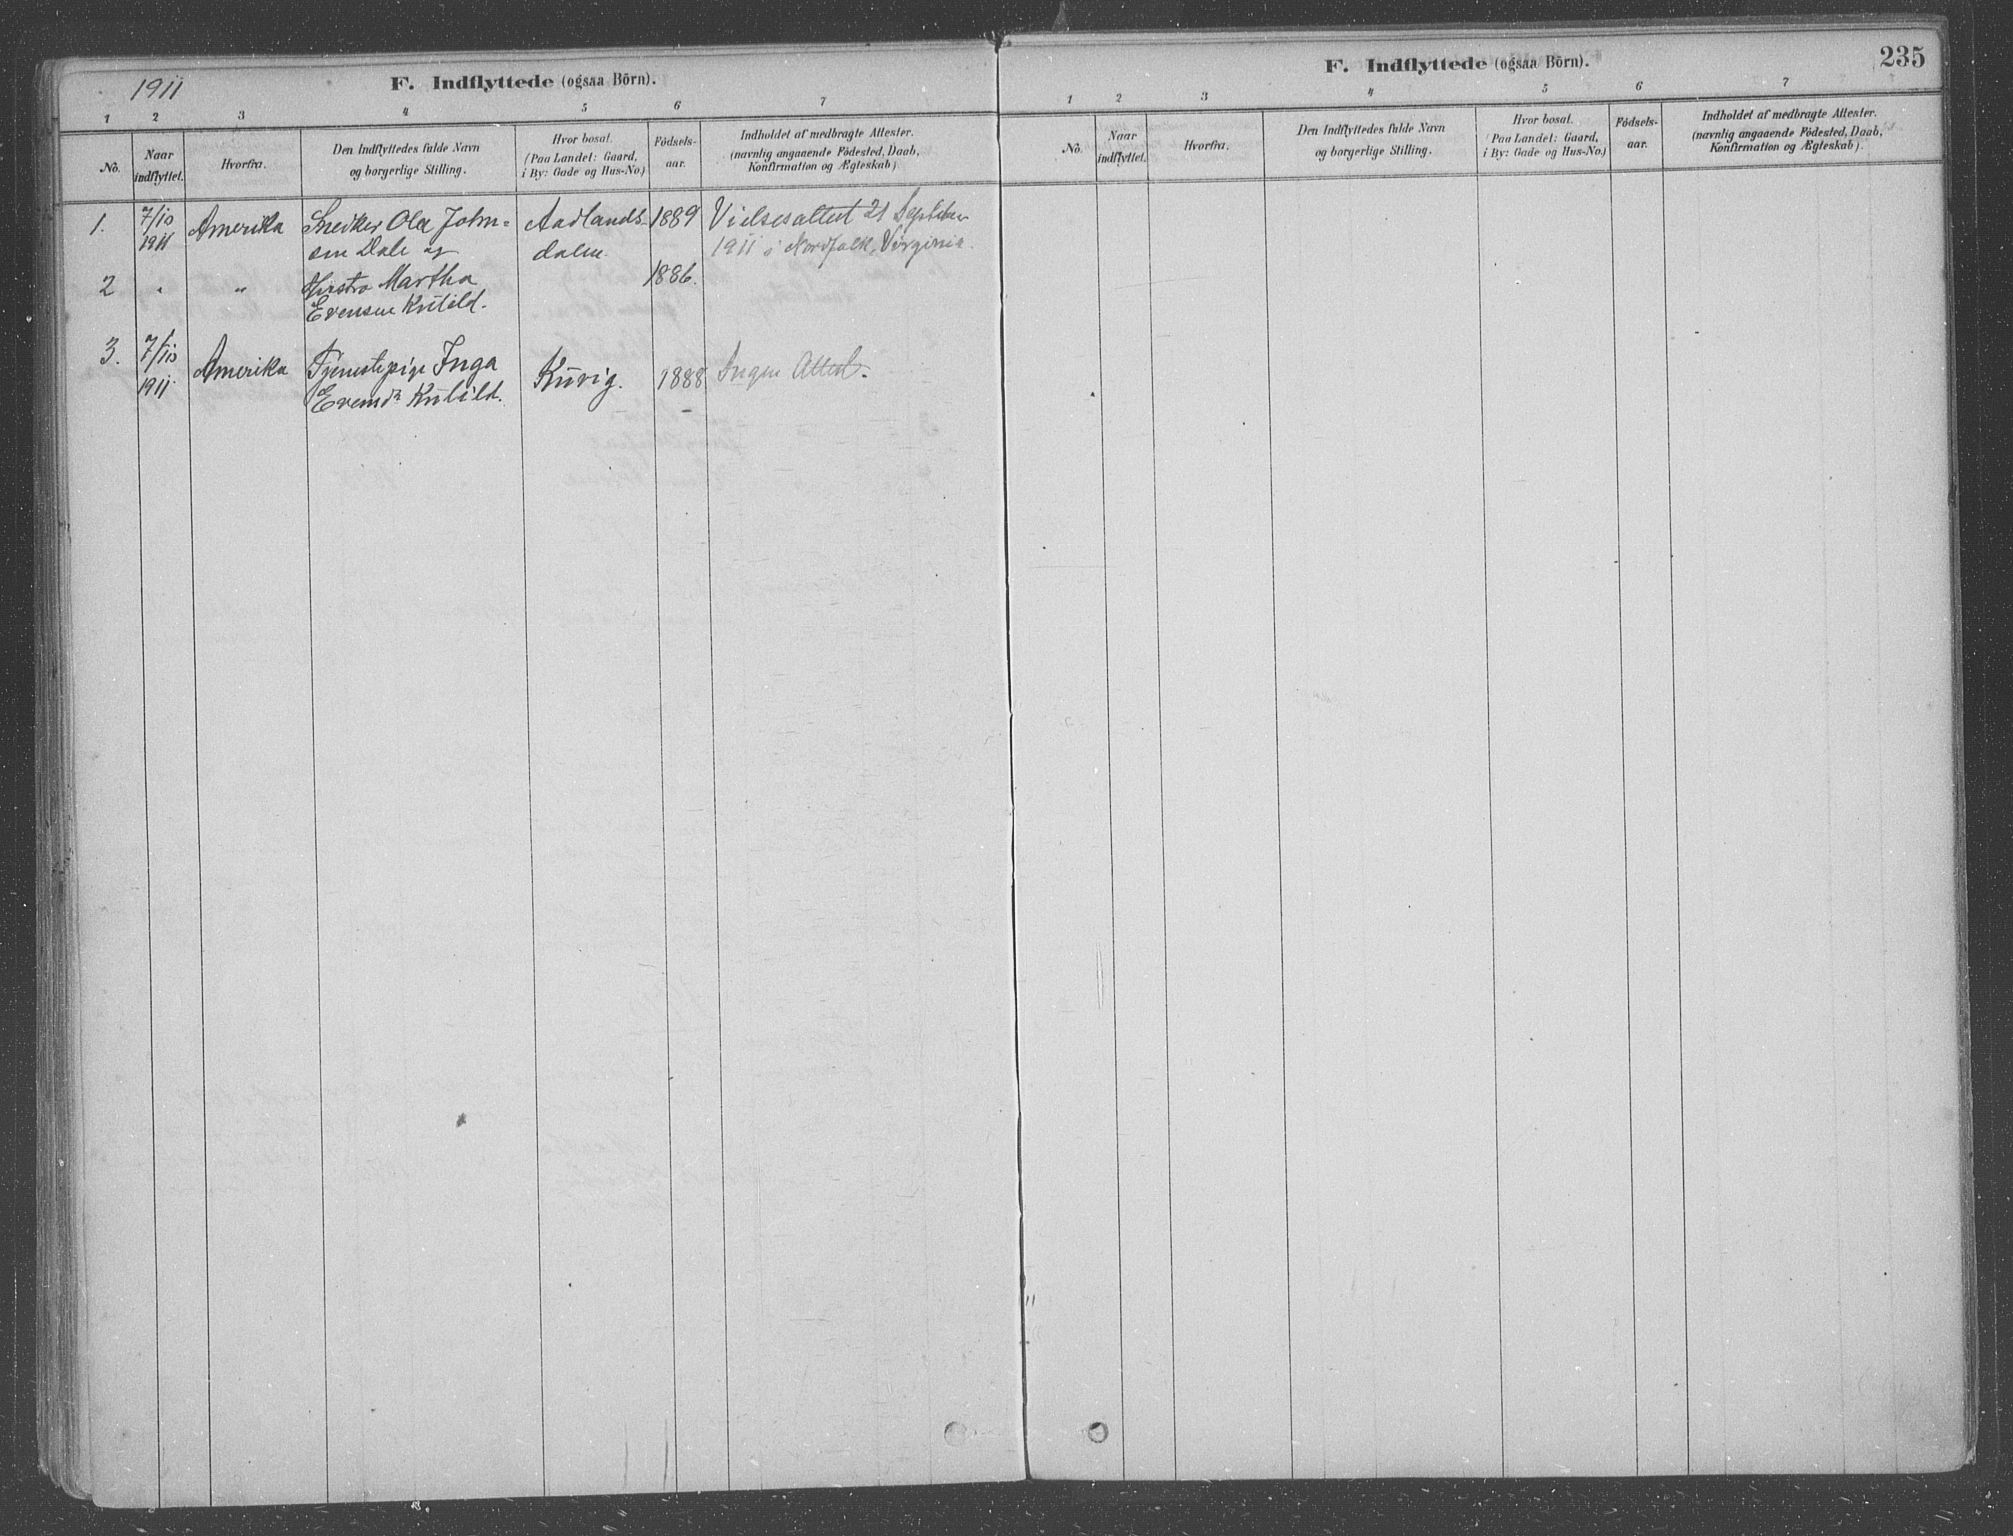 1911
F. Indflyttede (ogsaa Börn).
1 2 3 4 5 6 7
No.
Naar indflyttet.
Hvorfra.
Den Indflyttedes fulde Navn
og borgerlige Stilling.
Hvor bosat.
(Paa Landet: Gaard,
i By: Gade og Hus-No.)
Födsels-
aar.
Indholdet af medbragte Attester.
(navnlig angaaende Födested, Daab,
Konfirmation og Ægteskab).
1. 7/10 Amerika Snedker Ola John= Aadlands- 1889 Vielsesattest 21 September
1911 sen Dale og dalen 1911 i Nordfolk, Virginia.
2 " " Hustro Martha 1886.
Evensen
3. 7/10 Amerika Tjenestepige Inga 1888 Ingen Attest.
1911
F. Indflyttede (ogsaa Börn).
235
1 2 3 4 5 6 7
No.
Naar
indflyttet.
Hvorfra.
Den Indflyttedes fulde Navn
og borgerlige Stilling.
Hvor bosat.
(Paa Landet: Gaard,
i By: Gade og Hus-No.)
Födsels-
aar.
Indholdet af medbragte Attester.
(navnlig angaaende Födested, Daab,
Konfirmation og Ægteskab).